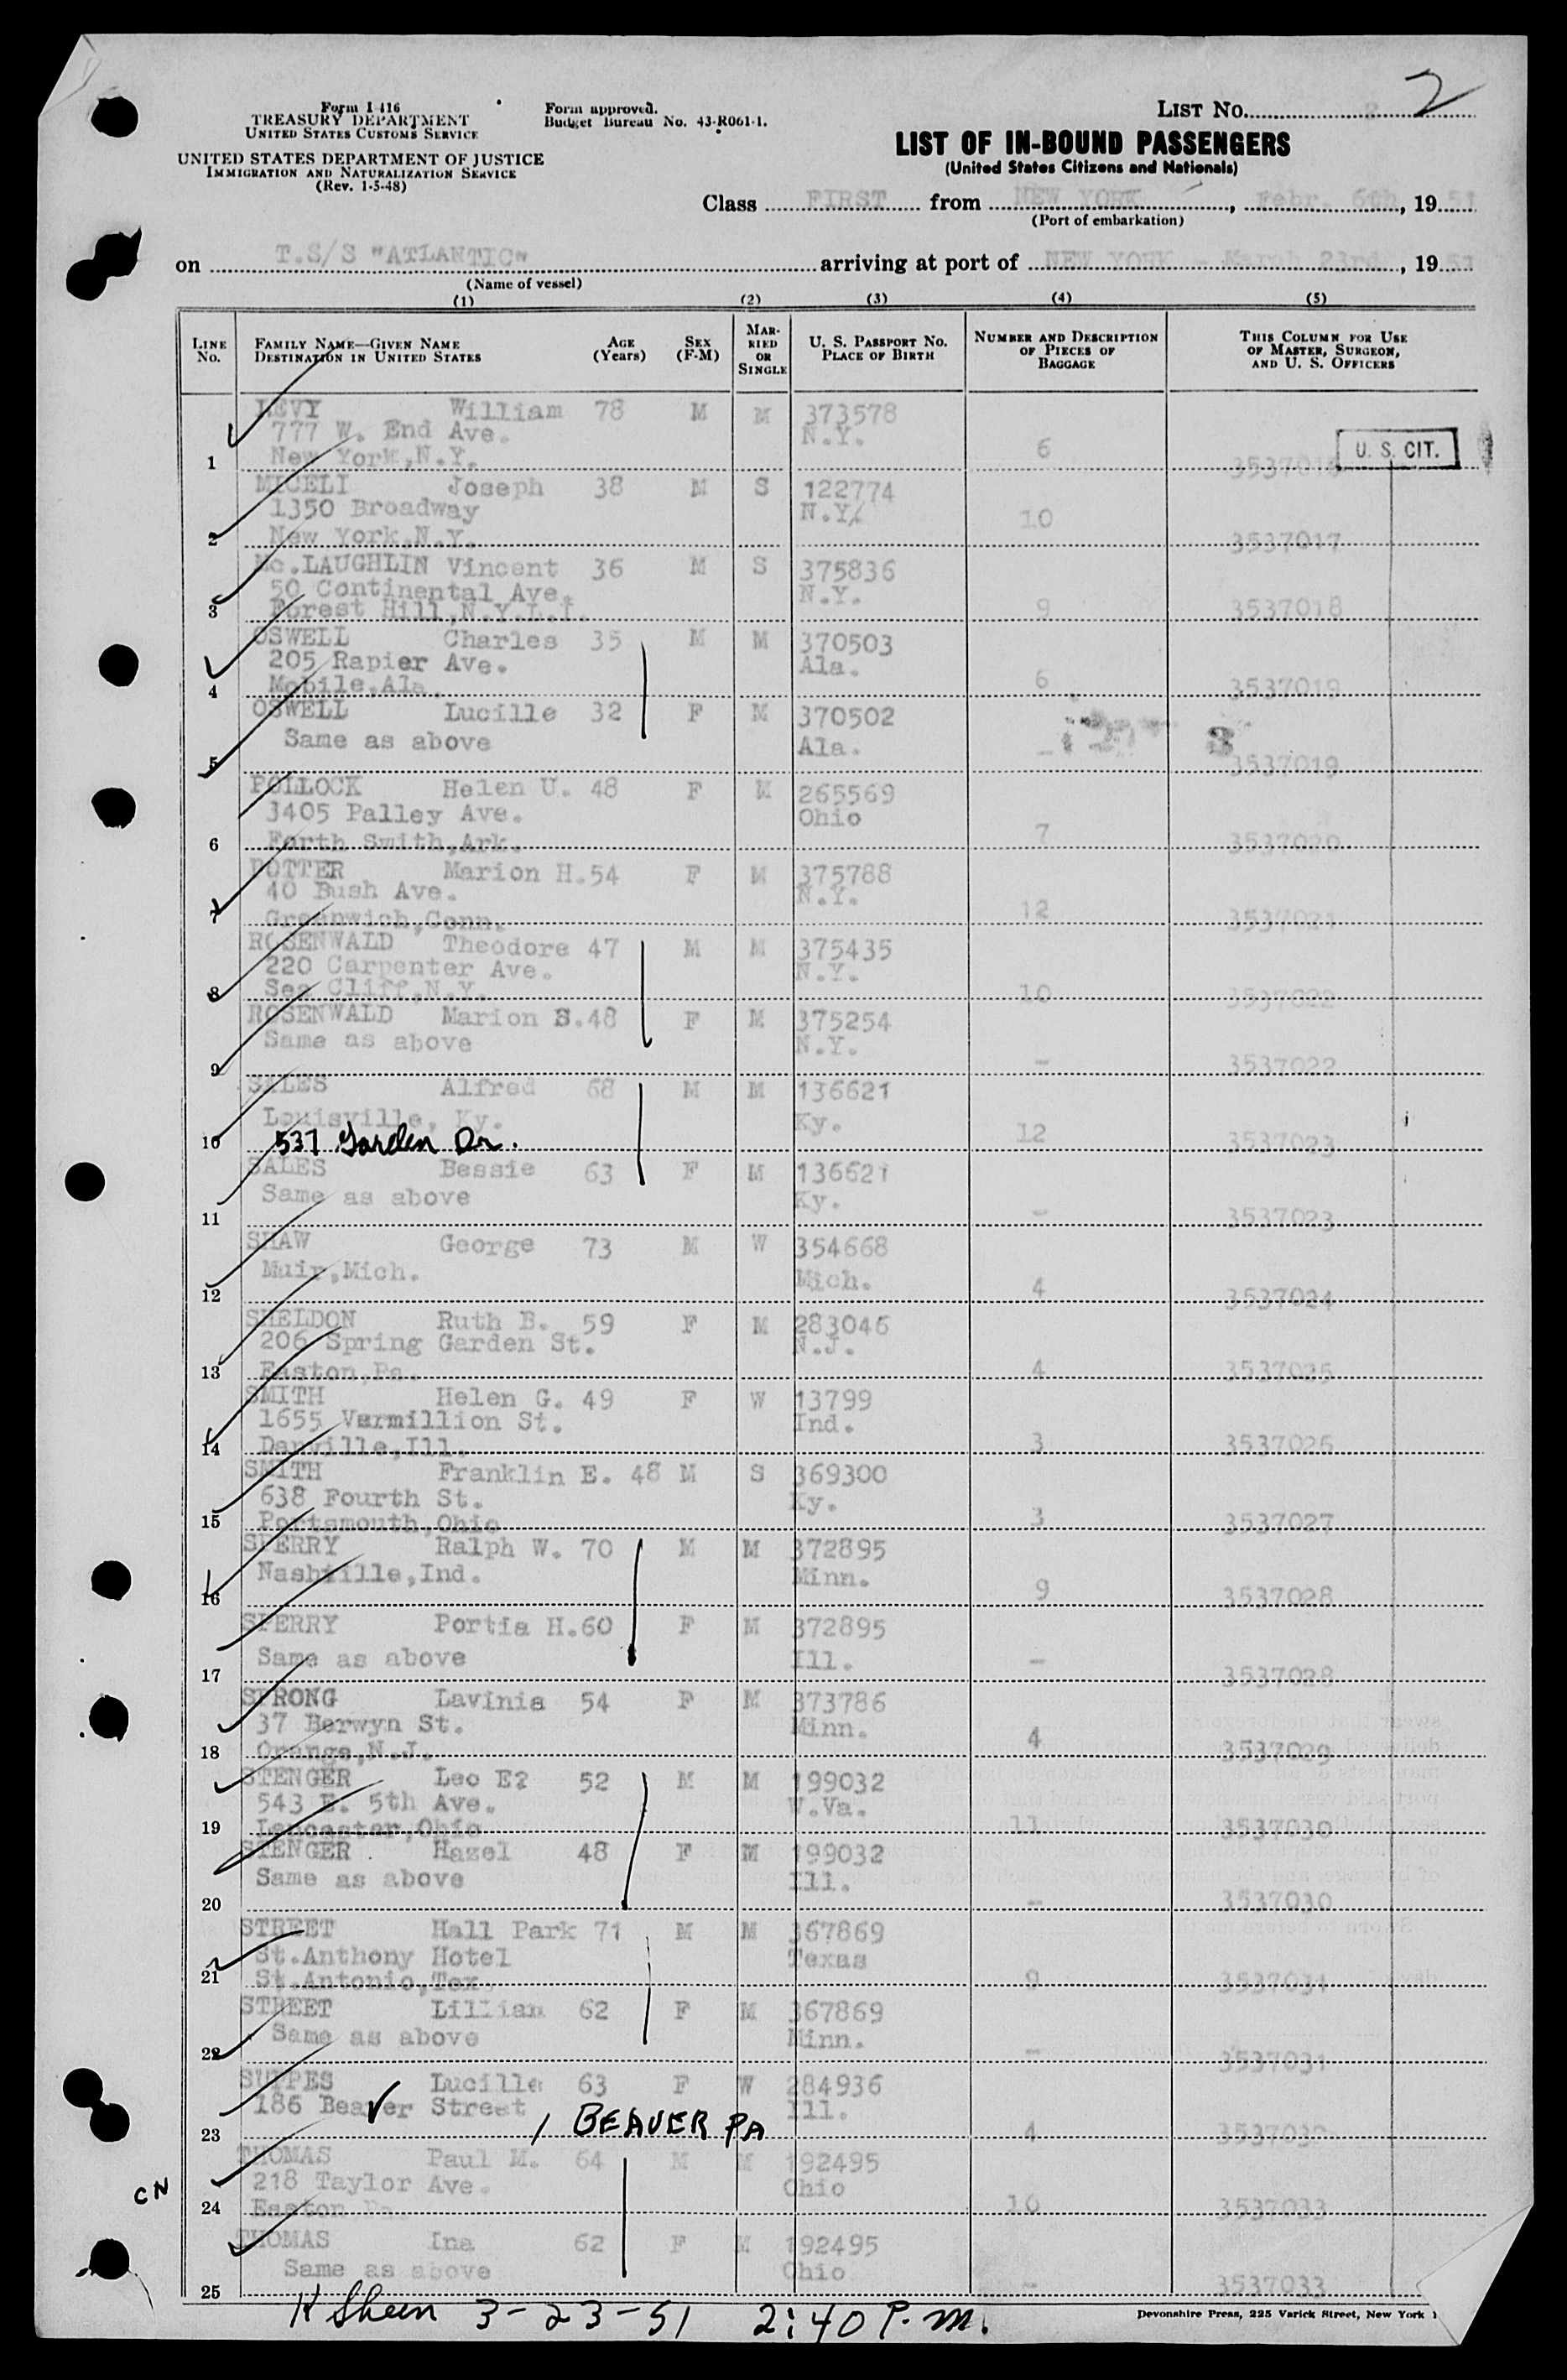 Form I-416
TREASURY DEPARTMENT
UNITED STATES CUSTOMS SERVICE
UNITED STATES DEPARTMENT OF JUSTICE
IMMIGRATION AND NATURALIZATION SERVICE
(Rev. 1-5-48)
Form approved.
Budget Bureau No. 43-R061-1.
LIST No. 2 2
LIST OF IN-BOUND PASSENGERS
(United States Citizens and Nationals)
Class FIRST from NEW YORK, Febr. 6th, 1951
(Port of embarkation)
on T.S/S "ATLANTIC" arriving at port of NEW YORK - March 23rd, 1951
(Name of vessel)
(1) (2) (3) (4) (5)
LINE No. FAMILY NAME—GIVEN NAME DESTINATION IN UNITED STATES AGE (Years) SEX (F-M) MARRIED OR SINGLE U. S. PASSPORT No. PLACE OF BIRTH NUMBER AND DESCRIPTION OF PIECES OF BAGGAGE THIS COLUMN FOR USE OF MASTER, SURGEON, AND U. S. OFFICERS
LEVY William 78 M M 373578
777 W. End Ave. N.Y.
1 New York,N.Y. 6 U. S. CIT.
MICELI Joseph 38 M S 122774
1350 Broadway N.Y.
2 New York,N.Y. 10 3537017
Mc.LAUGHLIN Vincent 36 M S 375836
50 Continental Ave. N.Y.
3 Forest Hill,N.Y.L.I. 9 3537018
OSWELL Charles 35 M M 370503
205 Rapier Ave. Ala.
4 Mobile,Ala. 6 3537019
OSWELL Lucille 32 F M 370502
Same as above Ala.
5 - 3 3537019
POLLOCK Helen U. 48 F M 265569
3405 Palley Ave. Ohio
6 Forth Smith,Ark. 7 3537020
POTTER Marion H. 54 F M 375788
40 Bush Ave. N.Y.
7 Greenwich,Conn. 12 3537021
ROSENWALD Theodore 47 M M 375435
220 Carpenter Ave. N.Y.
8 Sea Cliff,N.Y. 10 3537022
ROSENWALD Marion S. 48 F M 375254
Same as above N.Y.
9 - 3537022
SALES Alfred 68 M M 136621
Louisville, Ky. Ky.
10 537 Garden Dr. 12 3537023
SALES Bessie 63 F M 136621
Same as above Ky.
11 - 3537023
SHAW George 73 M W 354668
Muir,Mich. Mich.
12 4 3537024
SHELDON Ruth B. 59 F M 283046
206 Spring Garden St. N.J.
13 Easton,Pa. 4 3537025
SMITH Helen G. 49 F W 13799
1655 Vermillion St. Ind.
14 Danville,Ill. 3 3537026
SMITH Franklin E. 48 M S 369300
638 Fourth St. Ky.
15 Portsmouth,Ohio 3 3537027
SPERRY Ralph W. 70 M M 372895
Nashville,Ind. Minn.
16 9 3537028
SPERRY Portia H. 60 F M 372895
Same as above Ill.
17 - 3537028
STRONG Lavinia 54 F M 373786
37 Berwyn St. Minn.
18 Orange,N.J. 4 3537029
STENGER Leo E? 52 M M 199032
543 E. 5th Ave. W.Va.
19 Lancaster,Ohio 11 3537030
STENGER Hazel 48 F M 199032
Same as above Ill.
20 - 3537030
STREET Hall Park 71 M M 367869
St.Anthony Hotel Texas
21 St.Antonio,Tex. 9 3537031
STREET Lillian 62 F M 367869
Same as above Minn.
22 - 3537031
SUPPES Lucille 63 F W 284936
186 Beaver Street Ill.
23 , BEAVER PA 4
THOMAS Paul M. 64 M M 192495
218 Taylor Ave. Ohio
CN
24 Easton Pa. 10 3537033
THOMAS Ina 62 F M 192495
Same as above Ohio
25 - 3537033
K Sheen 3-23-51 2:40 P.m.
Devonshire Press, 225 Varick Street, New York